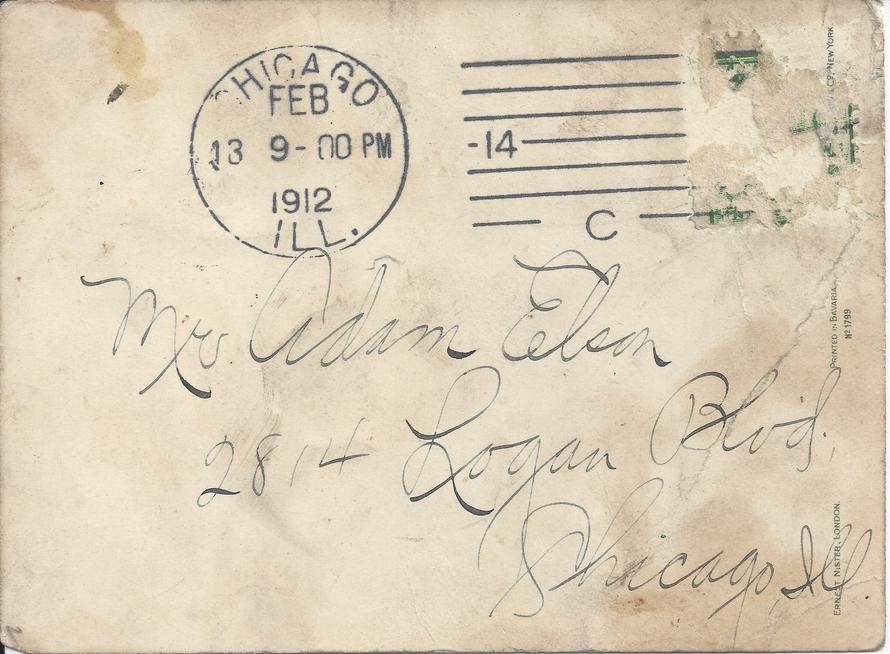 CHICAGO
FEB
13 9-00 PM
1912
ILL.
-14
C
Mr Adam Elson
2814 Logan Blvd,
Chicago, Ill.
ERNEST NISTER, LONDON.
PRINTED IN BAVARIA.
Nº 1799
Cº, NEW YORK.